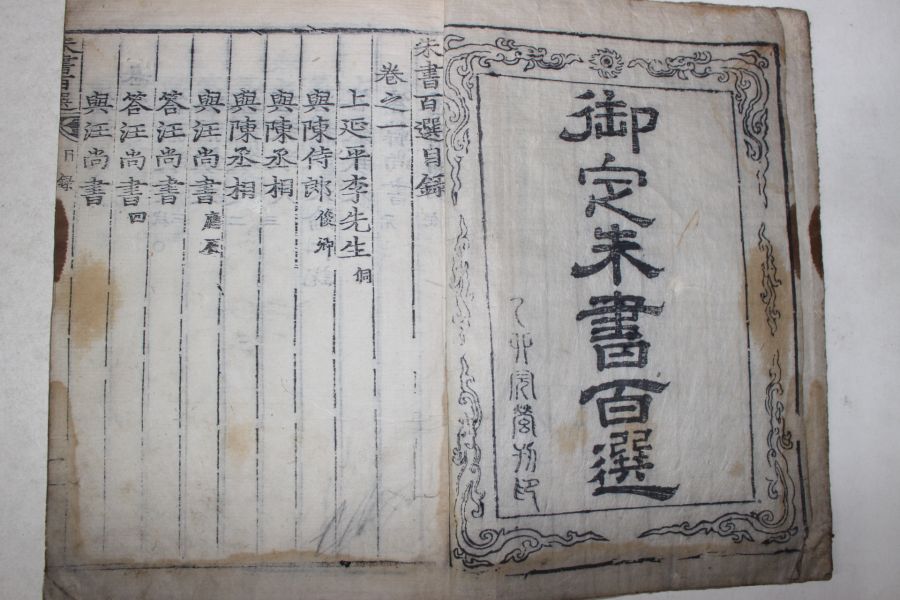 御定朱書百選
乙卯完營刊印
朱書百選目錄
卷之一
上延平李先生 侗
與陳侍郞 俊卿
與陳丞相
與陳丞相
與汪尚書 應辰
答汪尚書
答汪尚書 四
與汪尚書
朱書百選 目錄